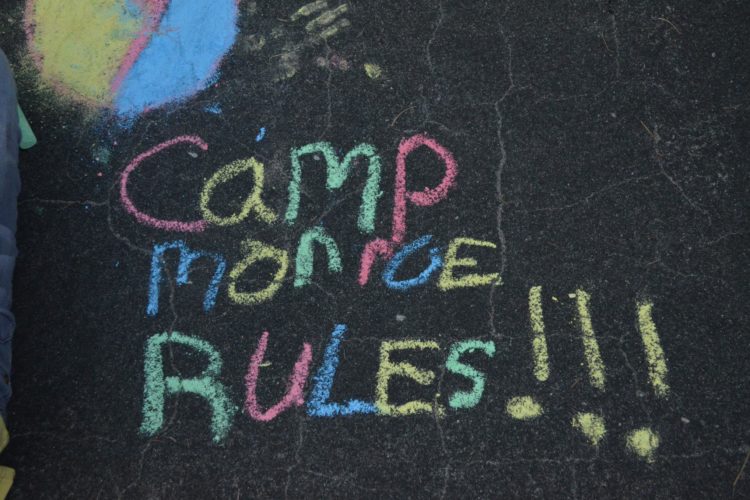 Camp
monroe
RULES!!!